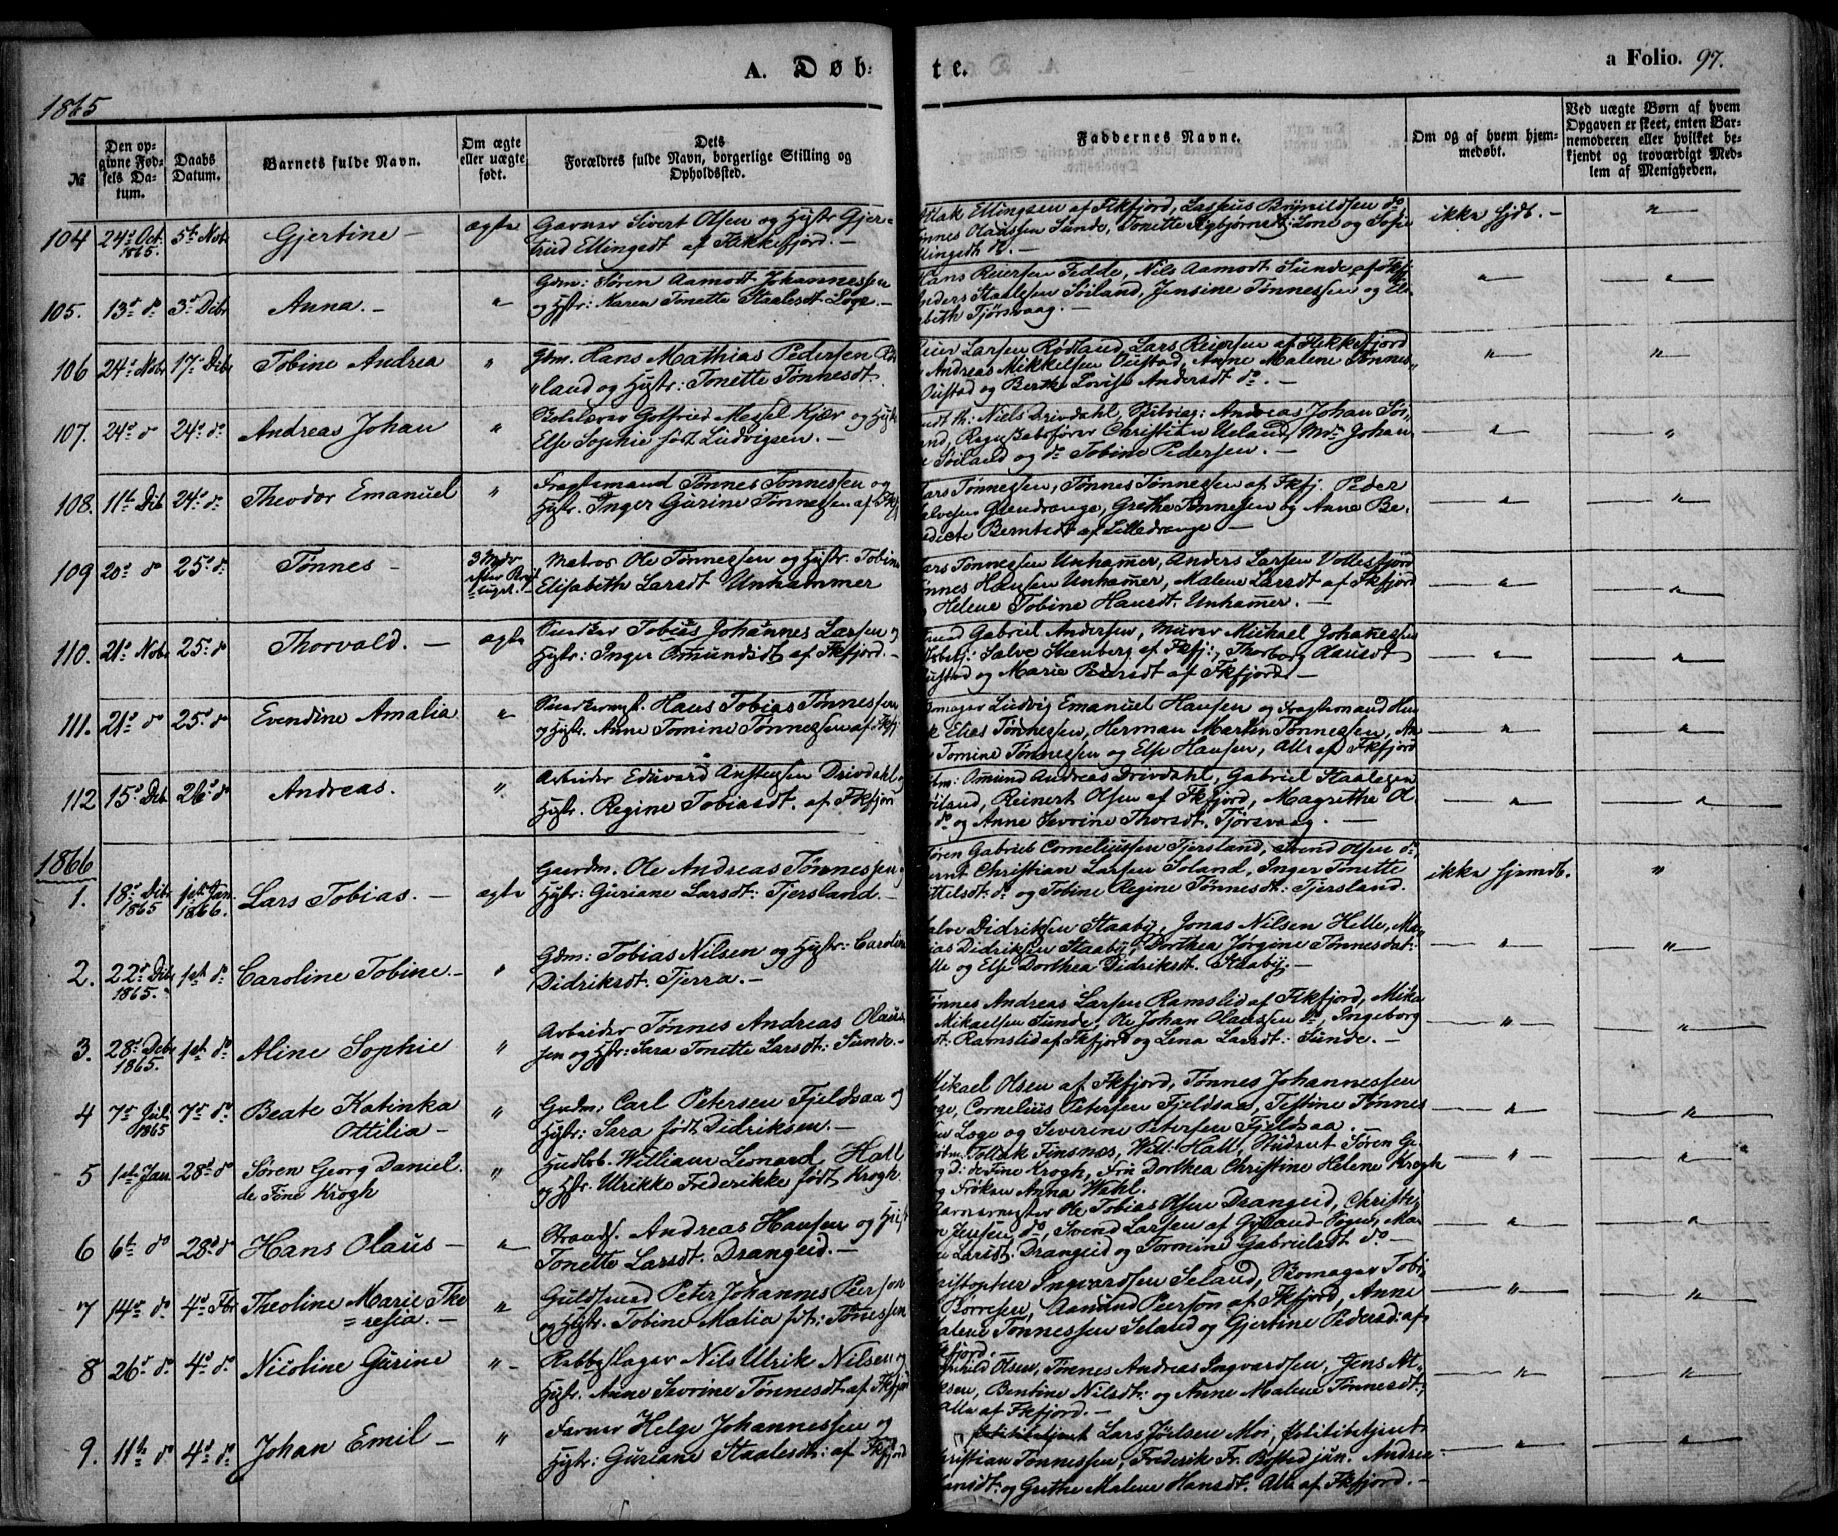 A. Døb- te.
a Folio. 97.
1865
№
Den opgivne Fødsels Datum.
Daabs Datum.
Barnets fulde Navn.
Om ægte eller uægte født.
Dets Forældres fulde Navn, borgerlige Stilling og Opholdssted.
Faddernes Navne.
Om og af hvem hjemmedøbt.
Ved uægte Børn af hvem Opgaven er skeet, enten Barnemoderen eller hvilket bekjendt og troværdigt Medlem af Menigheden.
104 24de Oct. 1865. 5te Nob. Gjertine – ægte
Garver Sivert Olsen og Hstr Gjertrud Ellingsdt af Flekkefjord. –
Ellingsen af Fkfjord, Brynildsen do
Olaussen Sunde, Tonette og Sofie
Ellingsdt do. –
ikke hjdt. – "
105. 13de do 3de Dcbr Anna. – "
Gdm: Søren Aamodt Johannessen
og Hstr: Karen Tonette Staalesdt Loge. –
Hans Reiersen Fedde, Nils Aamodt Sunde af Fkfj.
Anders Staalesen Søiland, Jensine Tønnessen og El-
beth Tjørsvaag. –
" "
106 24de Nobr 17de Dcbr Tobine Andrea "
Gdm. Hans Mathias Pedersen Rød-
land og Hstr: Tonette Tønnesdt.
Larsen Rødland, Lars Reiersen af Flekkefjord
Andreas Mikkelsen Oustad, Anne Malene Tønnes-
Oustad og Berthe Lovise Andersdt do. –
" "
107. 24de do 24de do Andreas Johan "
Gotfried Messel Kjær og Hstr
Else Sophie født Ludvigsen. –
Niels Drivdahl, Andreas Johan Søi-
land, Christian Ueland, Johan
Søiland og do Tobine Pedersen. –
" "
108. 11te Dcb 24de do Theodor Emanuel "
Fragtemand Tønnes Tønnessen og
Hstr. Inger Gurine Tønnessen af Fkfj
Lars Tønnessen, Tønnes Tønnessen af Fkfj. Peder
Grendrange, Grethe Tønnessen og Anne Be-
dicte Berntsdt af Lilledrange –
" "
109 20de do 25de do Tønnes – 3 Mdr efter
Matros Ole Tønnessen og Hstr. Tobine
Elisabeth Larsdt Unhammer
Lars Tønnessen Unhamer, Anders Larsen Vollesfjord
Tønnes Hansen Unhamer, Malene Larsdt af Fkfjord
Helene Tobine Hansdt. Unhamer. –
" "
110. 21de Nobr 25de do Thorvald. – ægte
Snedker Tobias Johannes Larsen og
Hstr: Inger Omundsdt af Fkfjord –
Gabriel Andersen, Murer Michael Johannesen
Salve Stenberg af Fkfj:, Thorborg Olausdt
Oustad og Marie Pedersdt af Fkfjord –
" "
111. 21de do 25de do Evendine Amalia "
Snedkermst. Hans Tobias Tønnessen
og Hstr. Anne Tomine Tønnessen af Fkfj
Ludvig Emanuel Hansen og Fragtemand Hen-
Elias Tønnessen, Herman Martin Tønnessen, An-
Tomine Tønnessen og Else Hansen, Alle af Fkfjord
" "
112 15de Dcb. 26de do Andreas. "
Arbeider Eduvard Anstensen Drivdahl og
Hstr. Regine Tobiasdt. af Fkfjord
Omund Andreas Drivdahl, Gabriel Staalesen
Søiland, Reinert Olsen af Fkfjord, Magrethe O.
do og Anne Sevrine Thorsdt. Tjørsvaag. –
" "
1866
1. 18de Dcbr 1865 1ste Jan. 1866. Lars Tobias. – ægte
Gaardm. Ole Andreas Tønnessen og
Hstr: Guriane Larsdt: Tjersland. –
Søren Gabriel Corneliussen Tjersland, Svend Olsen do,
Bernt Christian Larsen Søland, Inger Tonette
Kittilsdt: do og Tobine Regine Tønnesdt: Tjersland.
ikke hjemdt. "
2. 22de Dcbr 1865. 1ste do Caroline Tobine. – "
Gdm: Tobias Nilsen og Hstr: Caroline
Didriksdt. Tjerra. –
Salve Didriksen Staaby, Jonas Nilsen Helle, Ma-
Didriksen Staaby, Dorthea Jørgine Tønnesdt:
Helle og Else Dorthea Didriksdt. Staaby. –
" "
3. 28de Dcbr 1865. 1ste do Aline Sophie "
Arbeider Tønnes Andreas Olaus-
sen og Hstr: Sara Tonette Larsdt: Sunde –
Tønnes Andreas Larsen Ramslid af Fkfjord, Mika-
Mikaelsen Sunde, Ole Johan Olaussen do, Ingeborg
Ramslid af Fkfjord og Lena Larsdt: Sunde. –
" "
4 7de Juli 1865 7de do Beate Katinka Ottilia – "
Gudm: Carl Petersen Fjeldsaa og
Hstr: Sara født Didriksen. –
Mikael Olsen af Fkfjord, Tønnes Johannessen
Loge, Cornelius Petersen Fjeldsaa, Tønnes-
sen Loge og Severine Petersen Fjeldsaa. –
" "
5 1ste Jan. 28de do Søren Georg Daniel de Fine Krogh "
William Leonard Hall
og Hstr. Ulrikke Frederikke født Krogh
Tollak Finsnæs, Will: Hall, Student Søren Ge-
org D. de Fine Krogh, Fru Dorthea Christine Helene Krogh
og Frøken Anna Wahl.
" "
6 6te do 28de do Hans Olaus – "
Strands. Andreas Hansen og Hstr
Tonette Larsdt. Drangeid. –
Garvermester Ole Tobias Olsen Drangeid, Christi-
Jensen do, Svend Larsen af Gyland Sogn, Ma-
Larsdt. Drangeid og Tormine Gabrielsdt do –
" "
7 14de do 4de Fbr Theoline Marie The= resia. – "
Guldsmed Peter Johannes Peerson
og Hstr. Tobine Malia fdt: Tønnessen
Christopher Ingvardsen Seland, Skomager Tobi-
Børresen, Aanund Peerson af Fkfjord, Anne
Malene Tønnessen Seland og Gjertine Pedersd: af
Fkfjord. –
" "
8 26de do 4de do Nicoline Gurine "
Rebbeslager Nils Ulrik Nilsen og
Hstr. Anne Sevrine Tønnesdt af Fkfjord
Olsen, Tønnes Andreas Ingvardsen, Jens At-
Bentine Nilsdt: og Anne Malene Tønnesdt.,
alle af Fkfjord. –
" "
9. 11te do 4de do Johan Emil – "
Farver Helge Johannessen og
Hstr: Guriane Staalesdt: af Fkfjord
Lars Joelsen Moi, Politibetjent
Christian Tønnessen, Frederik Fr. Bosted jun. Andrea
Hansdt: og Grethe Malene Hansdt. Alle af Fkfjord. –
" "